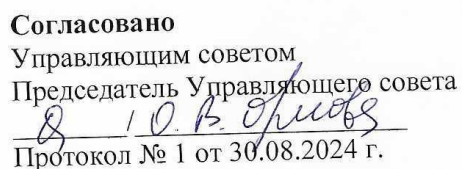 Согласовано
Управляющим советом
Председатель Управляющего совета
/ О. В. Орлова
Протокол № 1 от 30.08.2024 г.